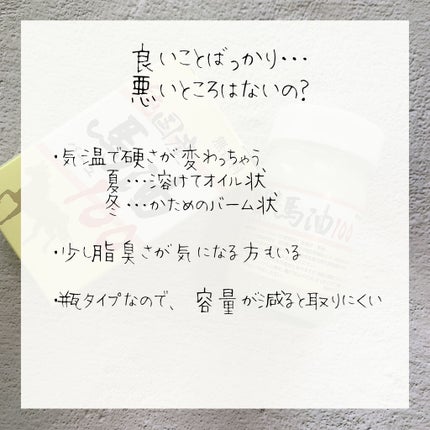 良いことばっかり・・・
悪いところはないの?
・気温で硬さが変わっちゃう
夏・・・溶けてオイル状
冬・・・かためのバーム状
・少し脂臭さが気になる方もいる
・瓶タイプなので、容量が減ると取りにくい
馬油100